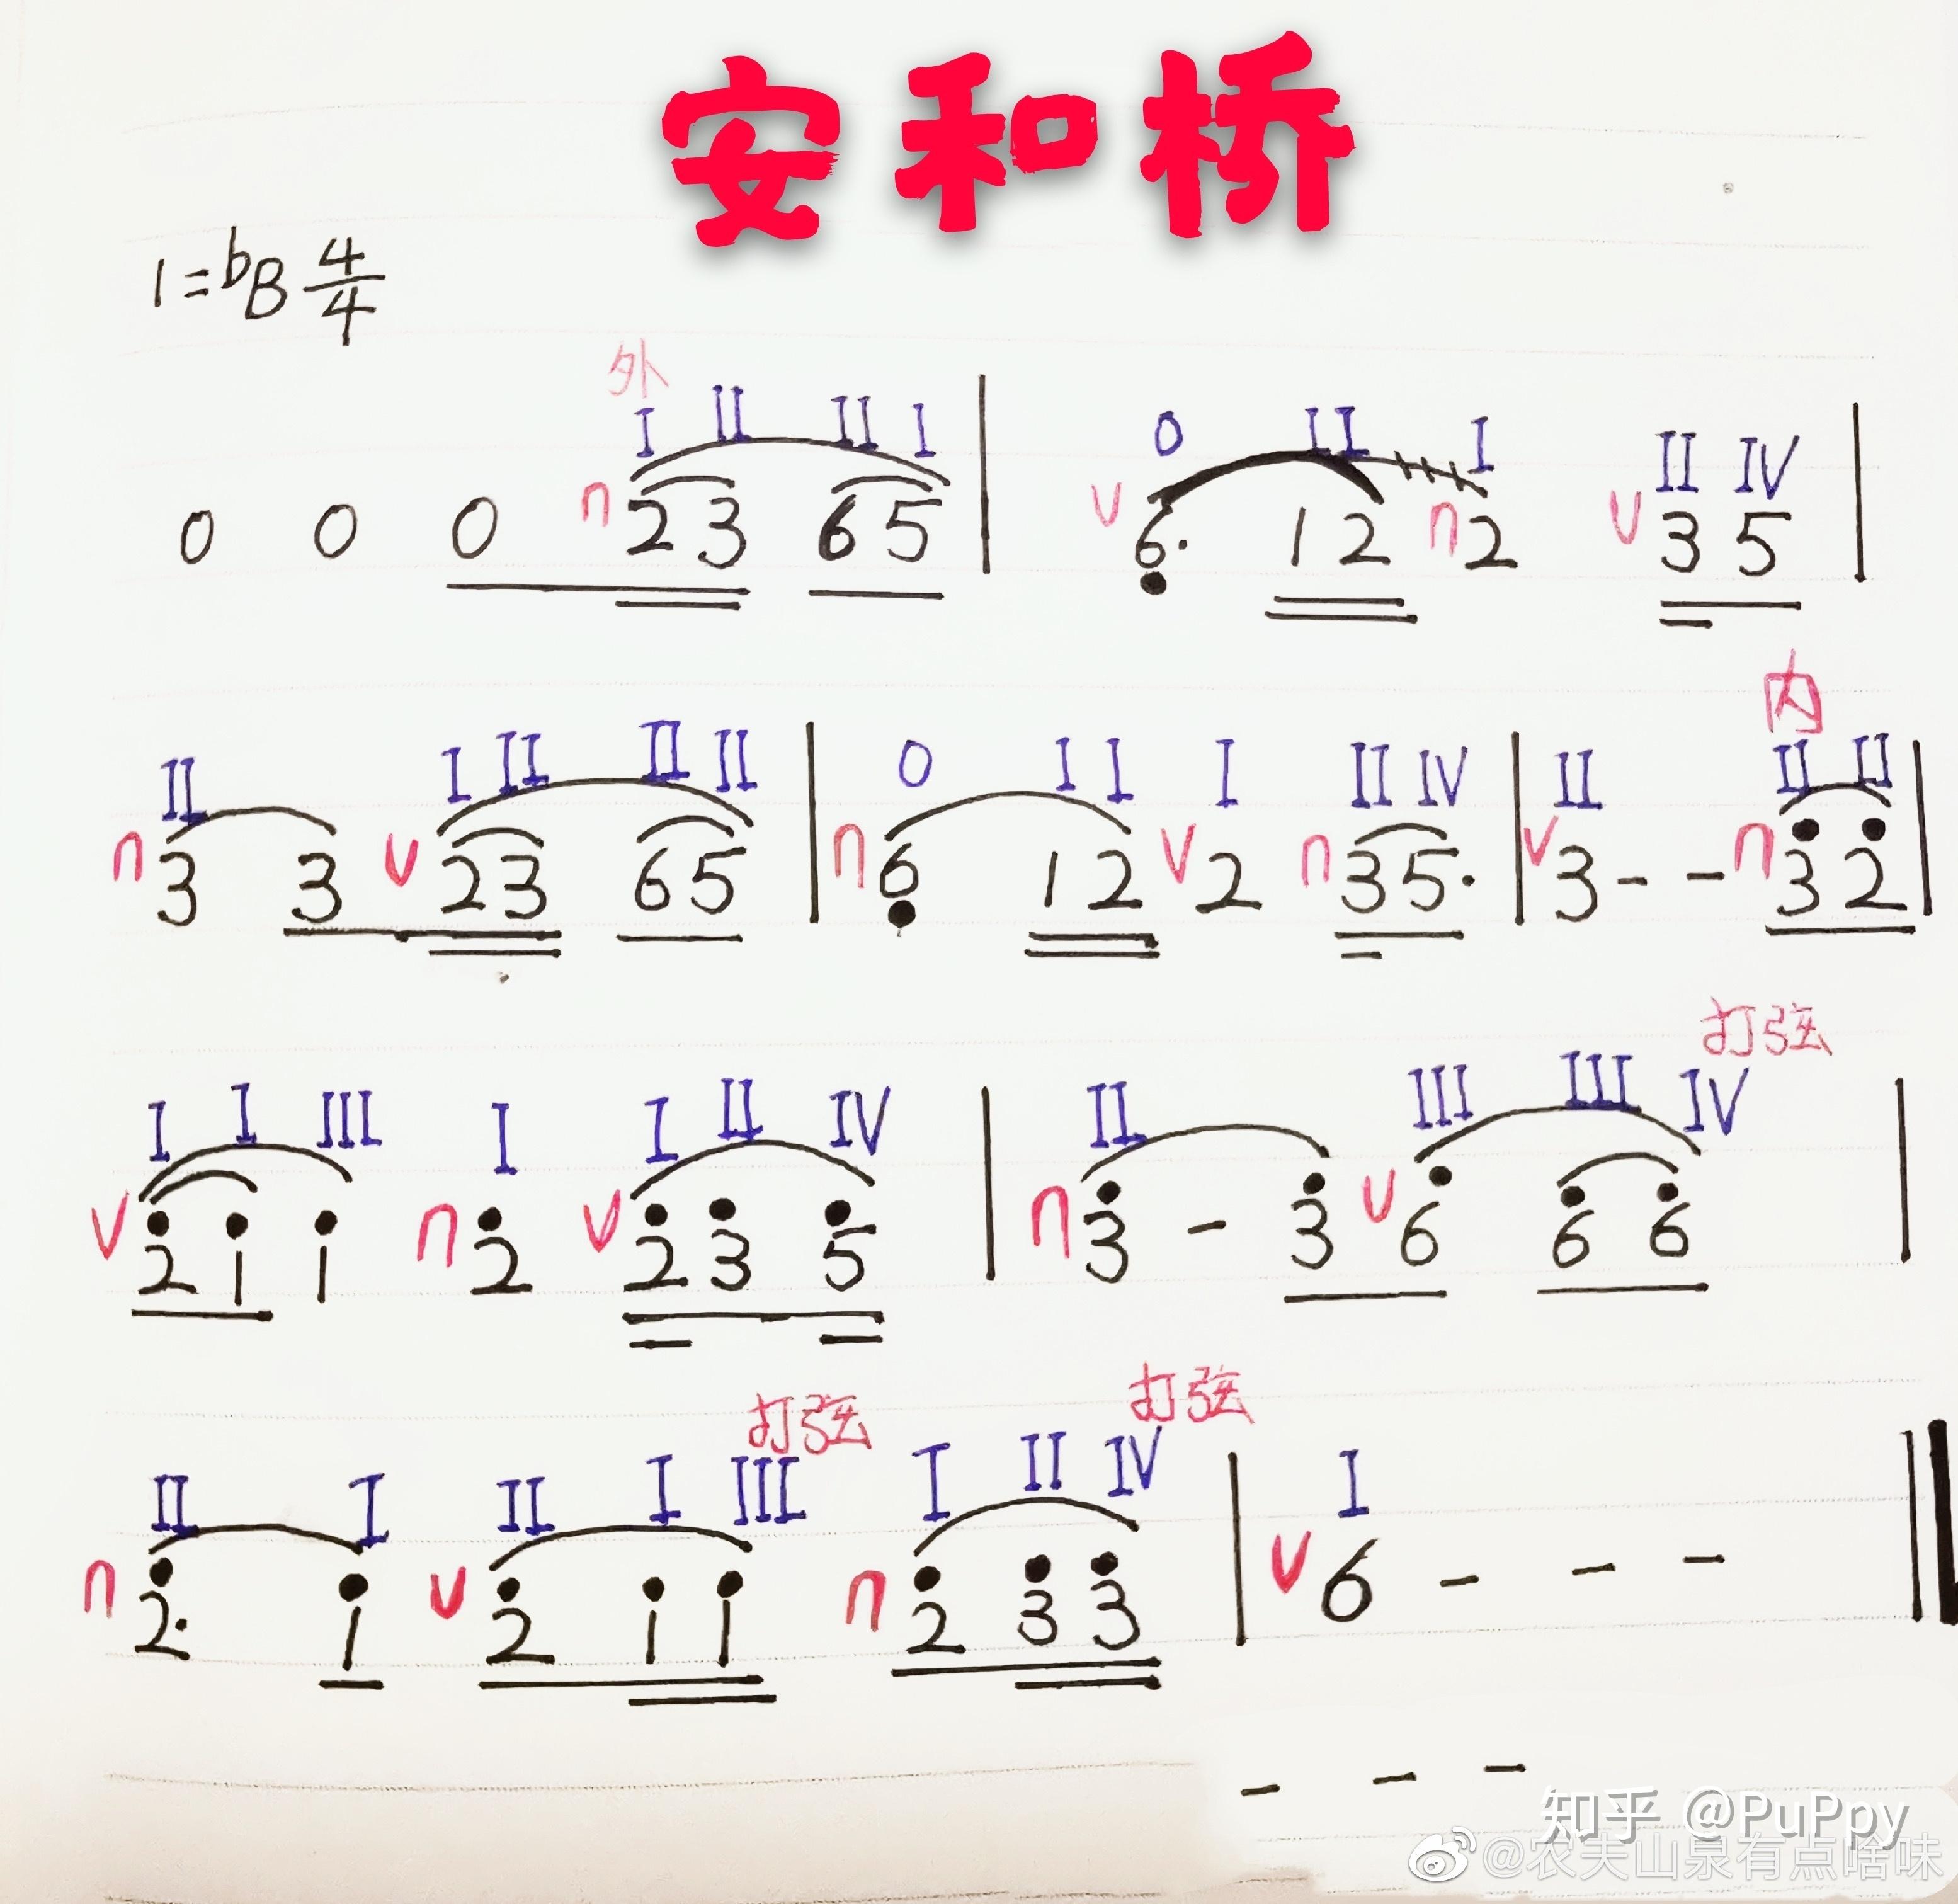 安和桥
1=bB 4/4
外
I II II I O I I I II IV
0 0 0 n 2 3 6 5 | v 6. 1 2 n 2 v 3 5 |
内
II I II II II O I I I II IV II II II
n 3 3 v 2 3 6 5 | n 6 1 2 v 2 n 3 5. | v 3 - - n 3 2 |
打弦
I I III I I II IV II III III IV
v 2 1 1 n 2 v 2 3 5 | n 3 - 3 v 6 6 6 |
打弦 打弦
II I II I III I II IV I
n 2. 1 v 2 1 1 n 2 3 3 | v 6 - - - ||
- - -
知乎 @PuPpy
@农夫山泉有点啥味